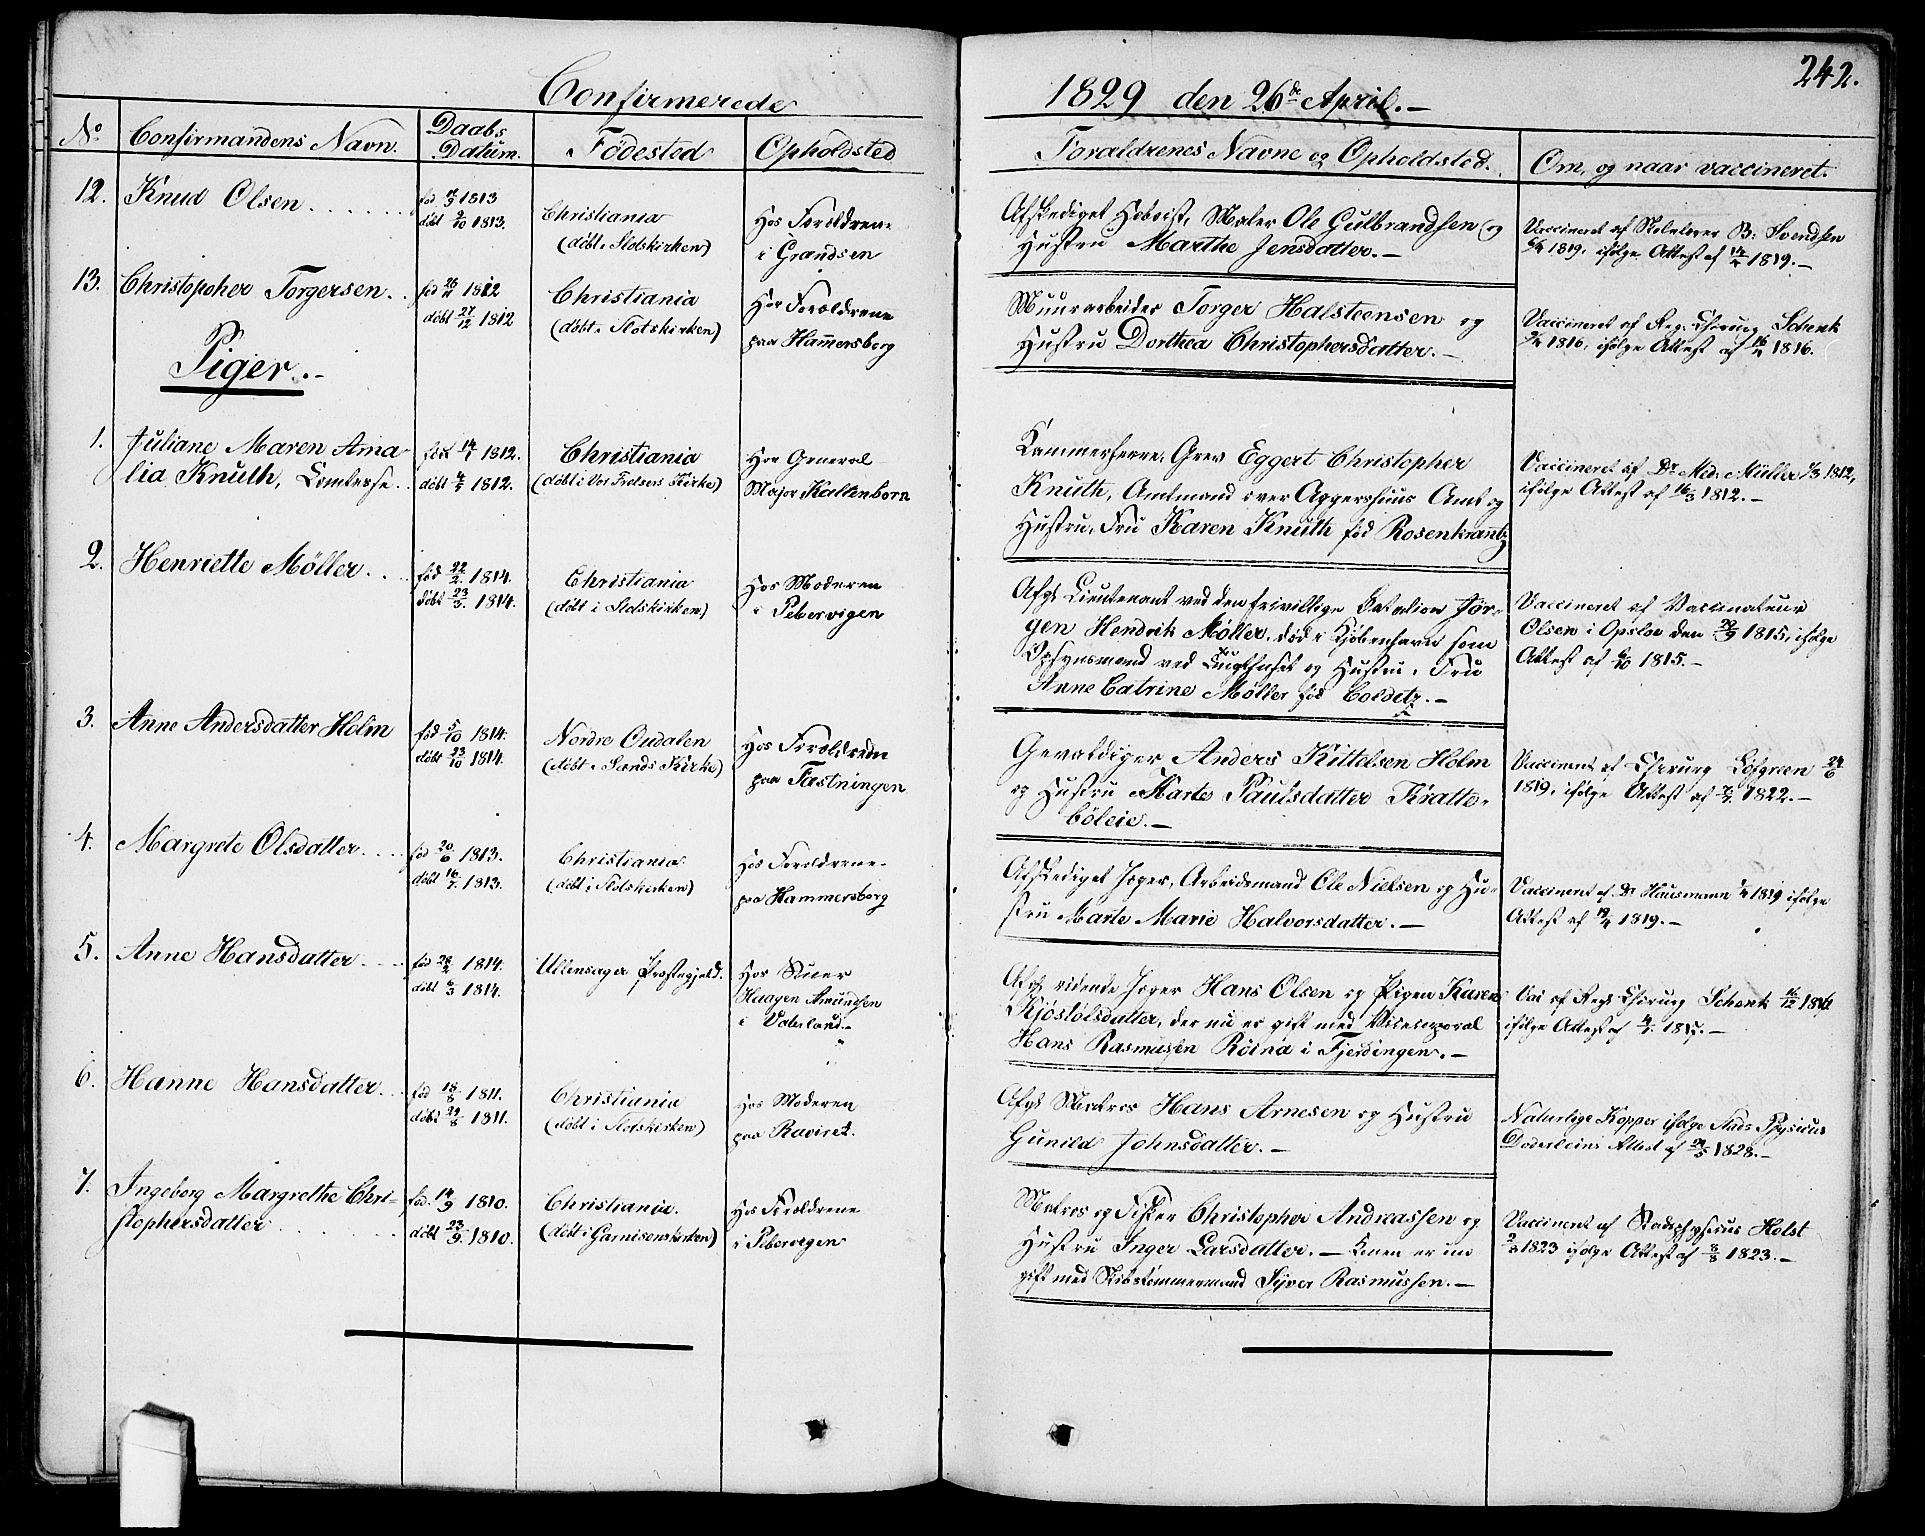 242.
Confirmerede
1829 den 26de April.-
No Confirmandens Navn. Daabs Datum. Födested Opholdsted
Foraldrenes Navne og Opholdsted. Om, og naar vaccineret.
12. Knud Olsen
1813
döbt 9/10 1813.
Christiania
(döbt i Slotskirken)
Hos Foroldrene
i Grændsen
Afskediget Hoboist, Maler Ole Gulbrandsen og
Hustru Marthe Jensdatter.-
Vaccineret af Skolelærer B: Svendsen
1819, ifølge Attest af 1819.-
13. Christopoher Torgersen
fød 26/11 1812
döbt 27/12 1812
Christiania
(döbt i Slotskirken)
Hos Foroldrene
paa Hammersborg
Muurarbeider Torger Halsteensen og
Hustru Dorthea Christophersdatter.-
Vaccineret af Reg: Chirurg Schenk
1816, ifølge Attest af 1816.
Piger.-
1. Juliane Maren Ama-
lia Knuth, Comtesse
fød 14/1 1812.
döbt 1812.
Christiania
(döbt i Vor Frelsers Kirke)
Hos General
Major Kaltenborn
Kammerherre, Grev Eggert Christopher
Knuth, Amtmand over Aggershuus Amt og
Hustru, Fru Karen Knuth fød Rosenkrantz
Vaccineret af Dr Med: Müller 1812,
ifølge Attest af 16/3 1812.-
2. Henriette Möller
fød 22/2 1814.
döbt 23/3 1814.
Christiania
(döbt i Slotskirken)
Hos Moderen
i Pebervigen
Afgk Lieutenant ved den frivillige Batalion Jør-
gen Hendrik Möller, død i Kjøbenhavn som
Opsynsmand ved Tugthuset og Hustru, Fru
Anne Catrine Möller fød Colditz.-
Vaccineret af Vaccinateur
Olsen i Opsloe den 29/9 1815, ifølge
Attest af 6/10 1815.-
3. Anne Andersdatter Holm
fød 5/10 1814.
döbt 23/10 1814.
Nordre Oudalen
(döbt i Sands Kirke)
Hos Foroldrene
paa Fæstningen
Gevaldiger Anders Kittelsen Holm
og Hustru Marte Paulsdatter Kratte-
böleie.-
Vaccineret af Chirurg Löfgreen 24/6
1819, ifølge Attest af 1822.-
4. Margrete Olsdatter
fød 20/6 1813.
döbt 16/7 1813.
Christiania
(döbt i Slotskirken)
Hos Foroldrene
paa Hammersborg
Afskediget Jæger, Arbeidsmand Ole Nielsen og Hu-
stru Marte Marie Halvorsdatter.-
Vaccineret af Dr Hausmann 1819 ifølge
Attest af 19/4 1819.-
5. Anne Hansdatter
fød 28/2 1814.
döbt 6/3 1814.
Ullensager Præstegjeld.
Hos
Haagen Amundsen
i Vaterland-
Afgk ridende Jæger Hans Olsen og Pigen Karen
Kjöstolsdatter, der nu er gift med Vicecorporal
Hans Rasmussen Röina i Fjerdingen.-
Vac: af Regs Chirurg Schenk 16/12 1816
ifølge Attest af
6. Hanne Hansdatter
fød 18/8 1811.
döbt 29/8 1811.
Christiania
(döbt i Slotskirken)
Hos Moderen
paa Raviret.
Afgk Matros Hans Arnesen og Hustru
Gunild Johnsdatter.-
Naturlige Kopper ifølge Stads Physicus
Doderleins Attest af 1828.-
7. Ingeborg Margrethe Chri-
stophersdatter
fød. 14/9 1810.
döbt 23/9 1810.
Christiania.
(döbt i Garnisonskirken)
Hos Foroldrene
i Pebervigen
Matros og Fisker Christopher Andreassen og
Hustru Inger Larsdatter.- Konen er nu
gift med Skibstømmermand Syver Rasmussen.-
Vaccineret af Stadsphysicus Holst
1823 ifølge Attest af 8/8 1823.-